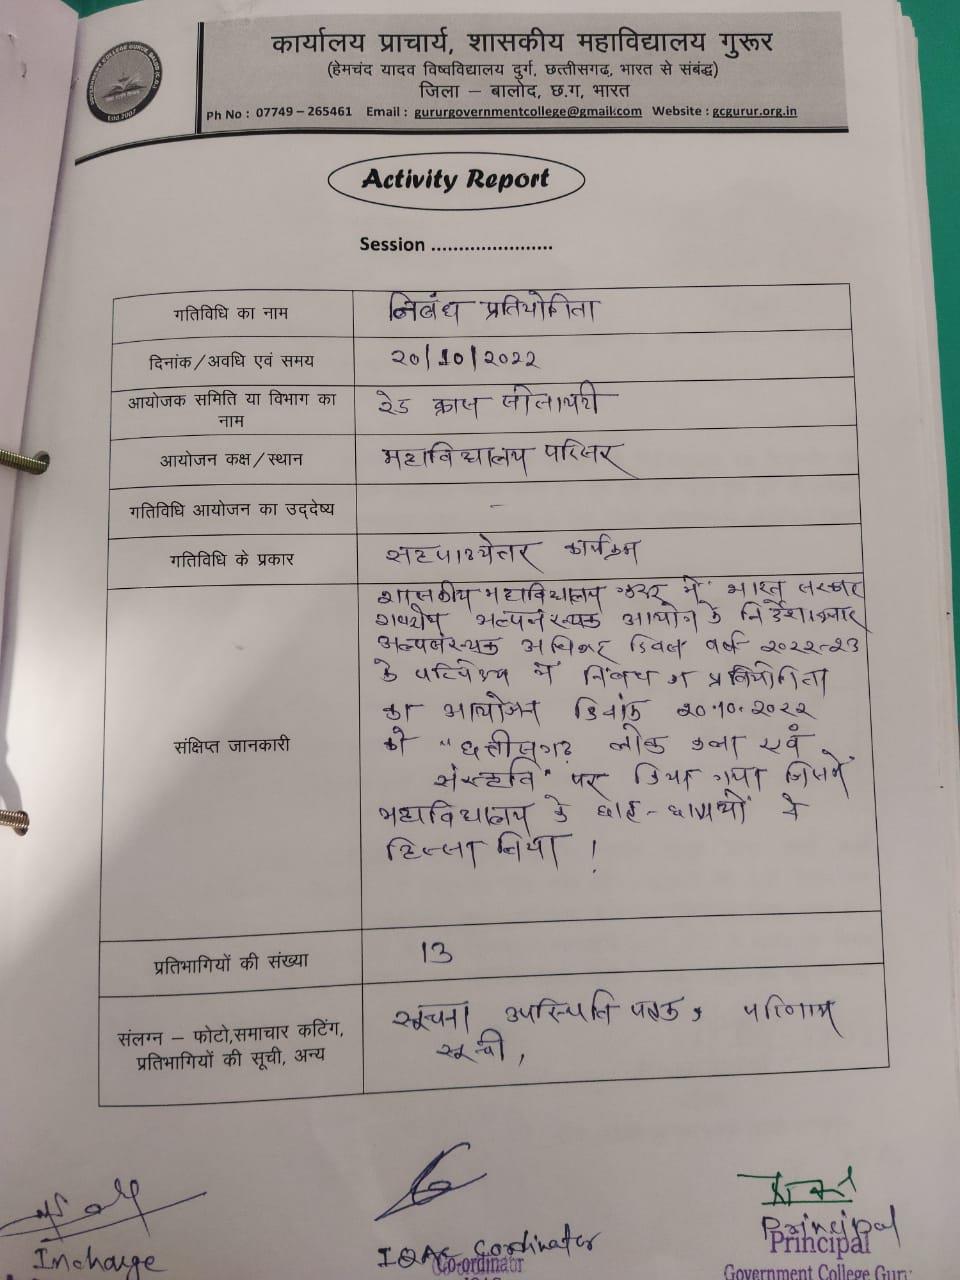 कार्यालय प्राचार्य, शासकीय महाविद्यालय गुरूर
(हेमचंद यादव विश्वविद्यालय दुर्ग, छत्तीसगढ, भारत से संबंद्ध)
जिला – बालोद, छ.ग, भारत
Ph No : 07749 – 265461 Email : gururgovernmentcollege@gmaik.com Website : gcgurur.org.in
Activity Report
Session ......................
गतिविधि का नाम
निबंध प्रतियोगिता
दिनांक/अवधि एवं समय
२०/10/२०२२
आयोजक समिति या विभाग का
नाम
रेड क्रास सोसायटी
आयोजन कक्ष/स्थान
महाविद्यालय परिसर
गतिविधि आयोजन का उद्देष्य
-
गतिविधि के प्रकार
सहपाठ्येत्तर कार्यक्रम
संक्षिप्त जानकारी
शासकीय महाविद्यालय गुरूर में भारत सरकार
अल्पसंख्यक आयोग के निर्देशानुसार
अल्पसंख्यक अधिकार दिवस वर्ष २०२२-२३
के परिपेक्ष्य में निबंध प्रतियोगिता
का आयोजन दिनांक २०.१०.२०२२
को "छत्तीसगढ़ लोक कला एवं
संस्कृति" पर किया गया जिसमें
महाविद्यालय के छात्र-छात्राओं ने
हिस्सा लिया !
प्रतिभागियों की संख्या
13
संलग्न – फोटो,समाचार कटिंग,
प्रतिभागियों की सूची, अन्य
सूचना उपस्थिति पत्रक, परिणाम
सूची,
Incharge
IQAC Coordinator
Co-ordinator
Principal
Principal
Government College Guru